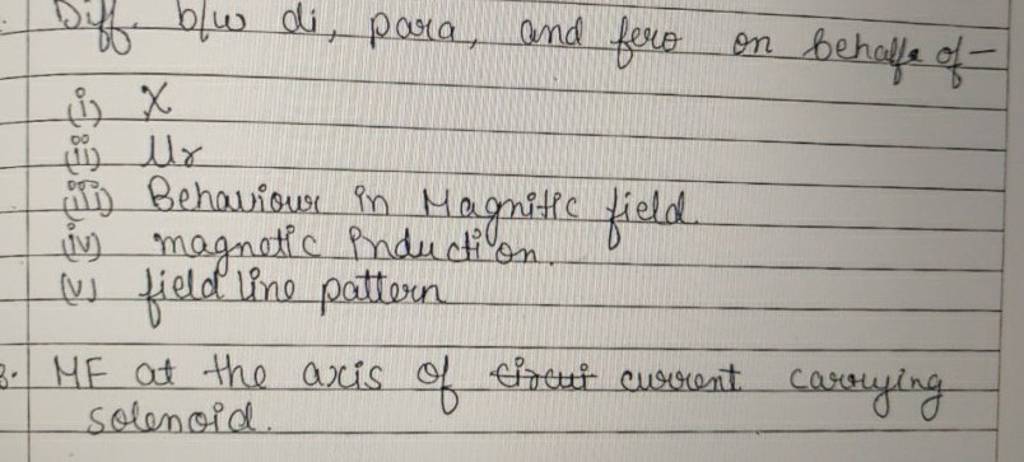 Diff. b/w di, para, and fero on behalfe of -
(i) X
(ii) Mr
(iii) Behaviour in Magnitic field
(iv) magnetic induction.
(v) field line pattern
3. MF at the axis of circui current carrying
solenoid.